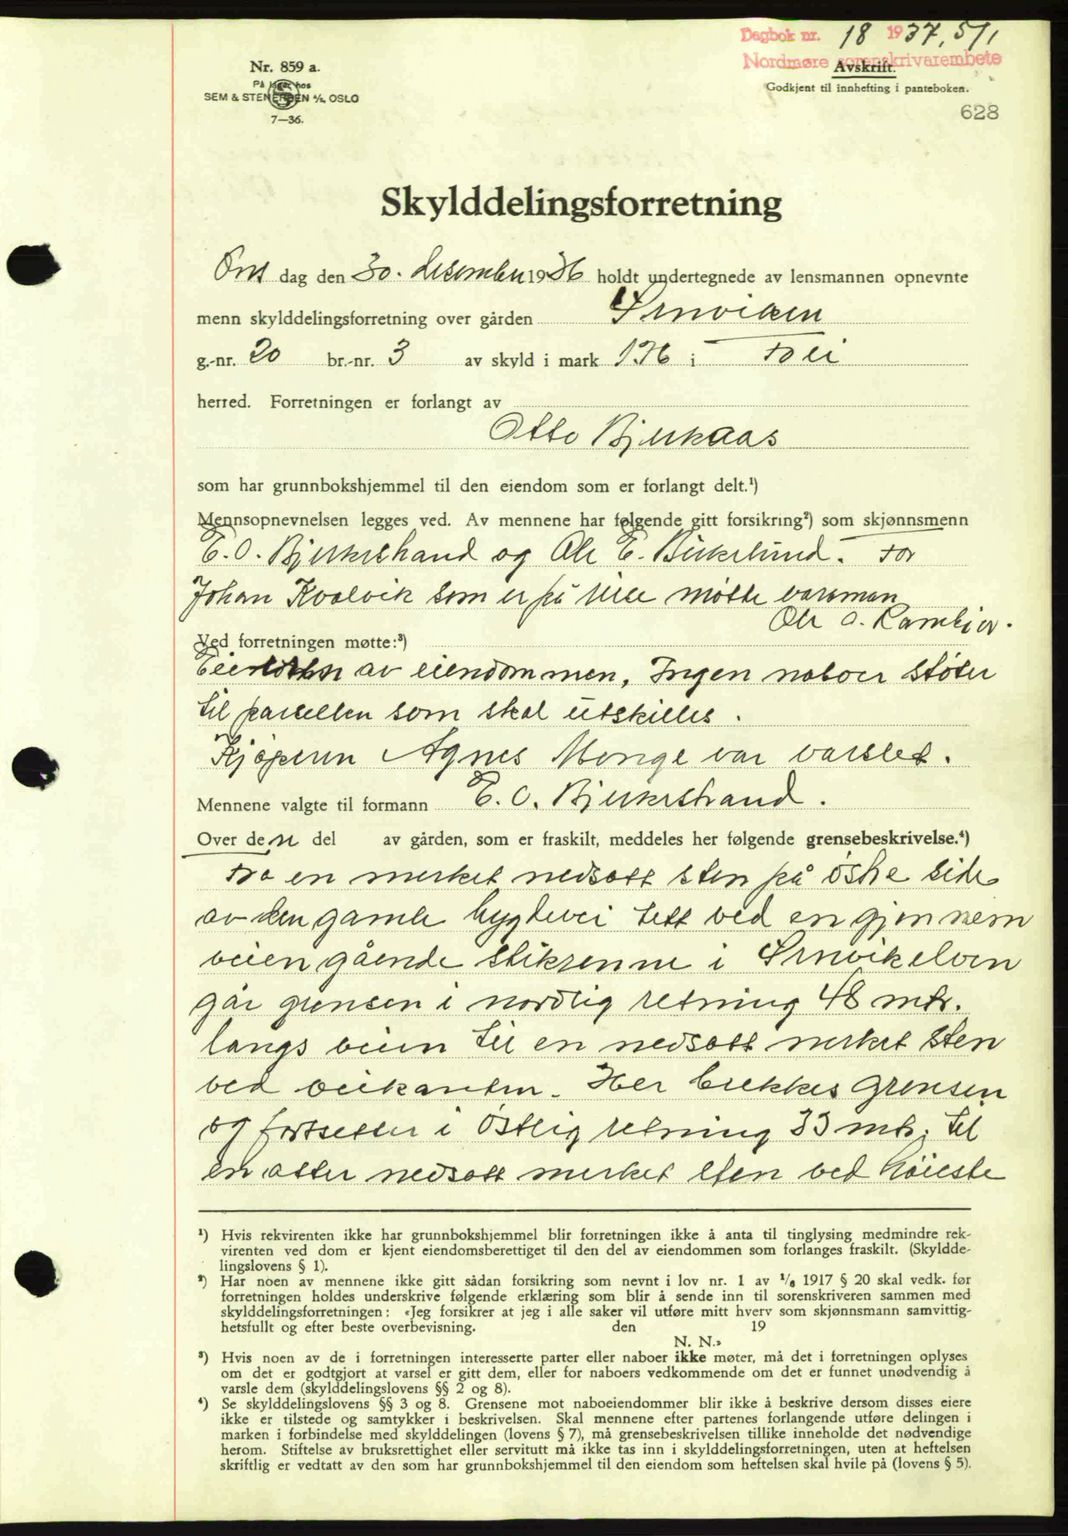 Dagbok nr. 18 1937, 5/1
Nordmøre sorenskrivarembete
Avskrift.
Godkjent til innhefting i panteboken.
628
Nr. 859 a.
På lager hos
SEM & STENERSEN A/S, OSLO
7—36.
Skylddelingsforretning
Ons dag den 30. desember 1936 holdt undertegnede av lensmannen opnevnte
menn skylddelingsforretning over gården Årnviken
g.-nr. 20 br.-nr. 3 av skyld i mark 1.76 i
herred. Forretningen er forlangt av
Otto Bjerkaas
som har grunnbokshjemmel til den eiendom som er forlangt delt.¹)
Mennsopnevnelsen legges ved. Av mennene har følgende gitt forsikring²) som skjønnsmenn
E. O. Bjerkestrand og Ole E. Birkelund. For
Johan Kvalvik som er på reise møtte varaman
Ole O.
Ved forretningen møtte:³)
av eiendommen, Ingen naboer støter
til parsellen som skal utskilles.
Kjøperen Agnes Monge var varslet.
Mennene valgte til formann E. O. Bjerkestrand.
Over den del av gården, som er fraskilt, meddeles her følgende grensebeskrivelse.⁴)
Fra en merket nedsatt sten på østre side
av den gamle bygdevei tett ved en gjennem
veien gående stikrenne i Årnvikelven
går grensen i nordlig retning 48 mtr.
langs veien til en nedsatt merket sten
ved veikanten. Her brekkes grensen
og fortsetter i østlig retning 33 mtr. til
en atter nedsatt merket sten ved høieste
¹) Hvis rekvirenten ikke har grunnbokshjemmel blir forretningen ikke å anta til tinglysing medmindre rek-
virenten ved dom er kjent eiendomsberettiget til den del av eiendommen som forlanges fraskilt. (Skyldde-
lingslovens § 1).
²) Har noen av mennene ikke gitt sådan forsikring som nevnt i lov nr. 1 av 1/6 1917 § 20 skal vedk. før
forretningen holdes underskrive følgende erklæring som blir å sende inn til sorenskriveren sammen med
skylddelingsforretningen: «Jeg forsikrer at jeg i alle saker vil utføre mitt hverv som skjønnsmann samvittig-
hetsfullt og efter beste overbevisning. den 19
N. N.»
³) Hvis noen av de i forretningen interesserte parter eller naboer ikke møter, må det i forretningen oplyses
om det er godtgjort at varsel er gitt dem, eller for naboers vedkommende om det er funnet unødvendig å
varsle dem (skylddelingslovens §§ 2 og 8).
⁴) Se skylddelingslovens §§ 3 og 8. Grensene mot naboeiendommer blir ikke å beskrive dersom disses eiere
ikke er tilstede og samtykker i beskrivelsen. Skal mennene efter partenes forlangende utføre delingen i
marken i forbindelse med skylddelingen (lovens § 7), må grensebeskrivelsen tillike inneholde det nødvendige
herom. Stiftelse av bruksrettighet eller servitutt må ikke tas inn i skylddelingsforretningen, uten at heftelsen
skriftlig er vedtatt av den som har grunnbokshjemmel til den eiendom som heftelsen skal hvile på (lovens § 5).